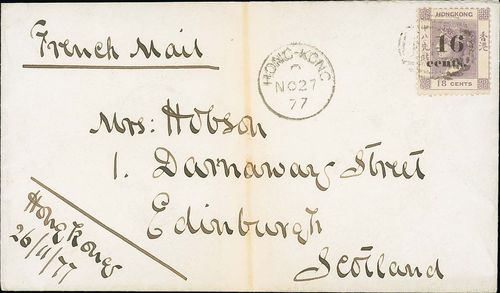 French Mail
HONG-KONG
C
NO 27
77
HONGKONG
16
cents.
18 CENTS
Mrs: Hobson
1. Darnaway Street
Edinburgh
Scotland
Hongkong
26/11/77